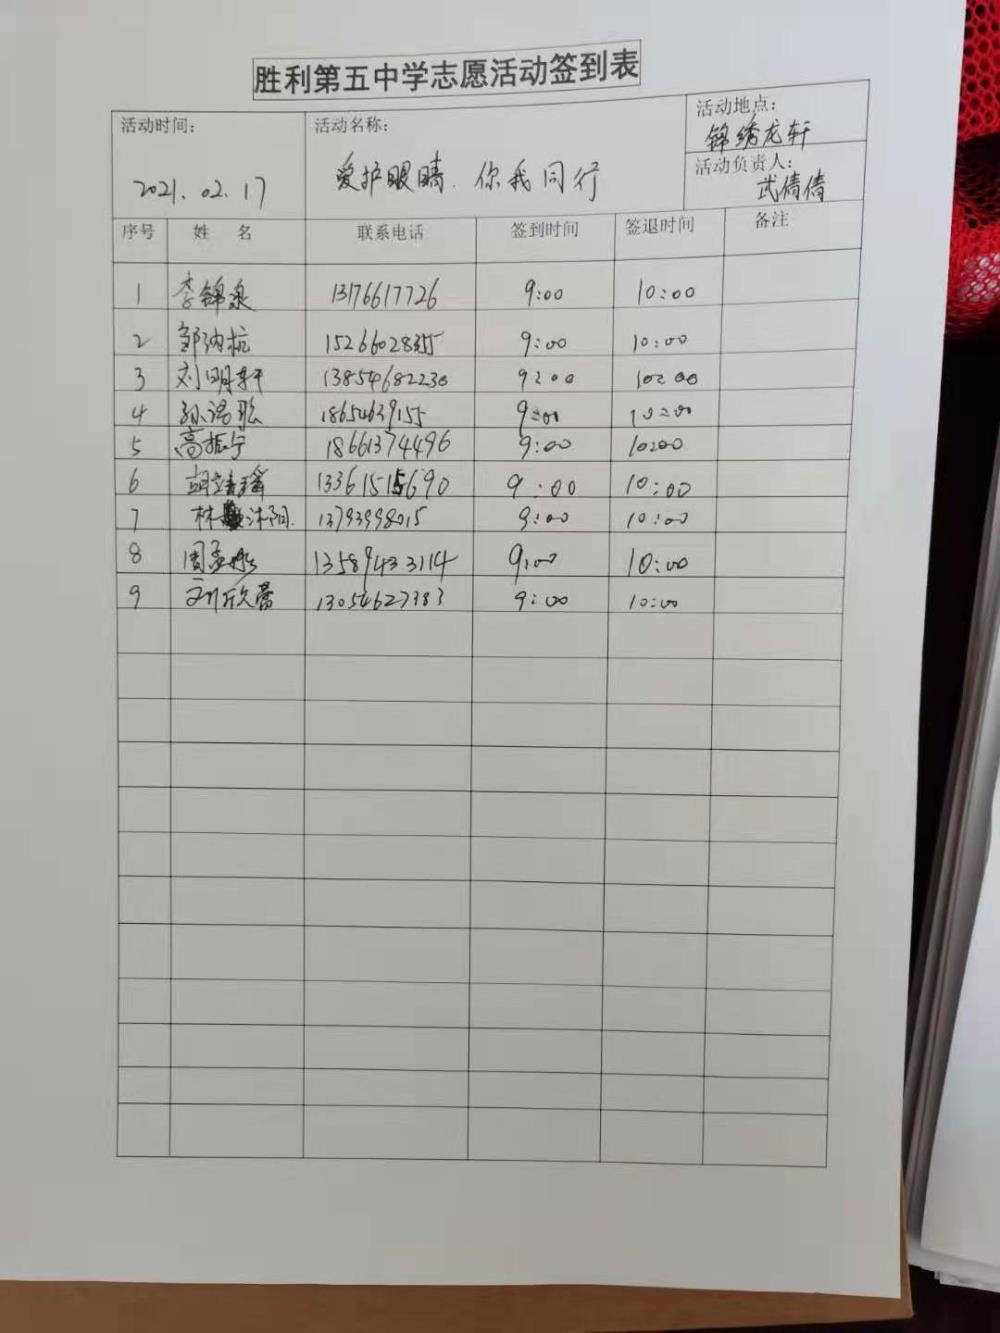 胜利第五中学志愿活动签到表
活动时间: 活动名称: 活动地点:
锦绣龙轩
2021.02.17 爱护眼睛.你我同行 活动负责人:
武倩倩
序号 姓 名 联系电话 签到时间 签退时间 备注
1 李锦泉 13176617726 9:00 10:00
2 邹 15266028 9:00 10:00
3 刘明轩 13854682230 9:00 10:00
4 孙诺歌 18654639155 9:00 10:00
5 高振宁 18661374496 9:00 10:00
6 胡靖瑶 13361515690 9:00 10:00
7 林沐阳. 13793998015 9:00 10:00
8 周孟 13589433114 9:00 10:00
9 刘欣蕾 13054627383 9:00 10:00